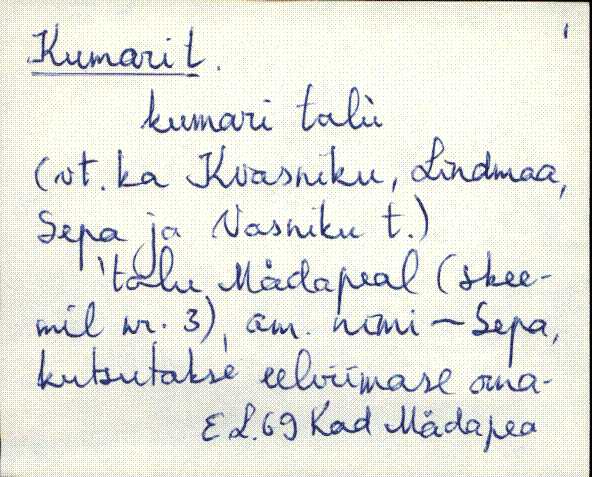 Kumari t.
kumari talù
(vt. ka Kvasniku, Lindmaa,
Sepa ja Vasniku t.)
'talu Mädapeal (skee-
mil nr. 3), am. nimi – Sepa,
kutsutakse eelviimase oma-
E L. 69 Kad Mädapea